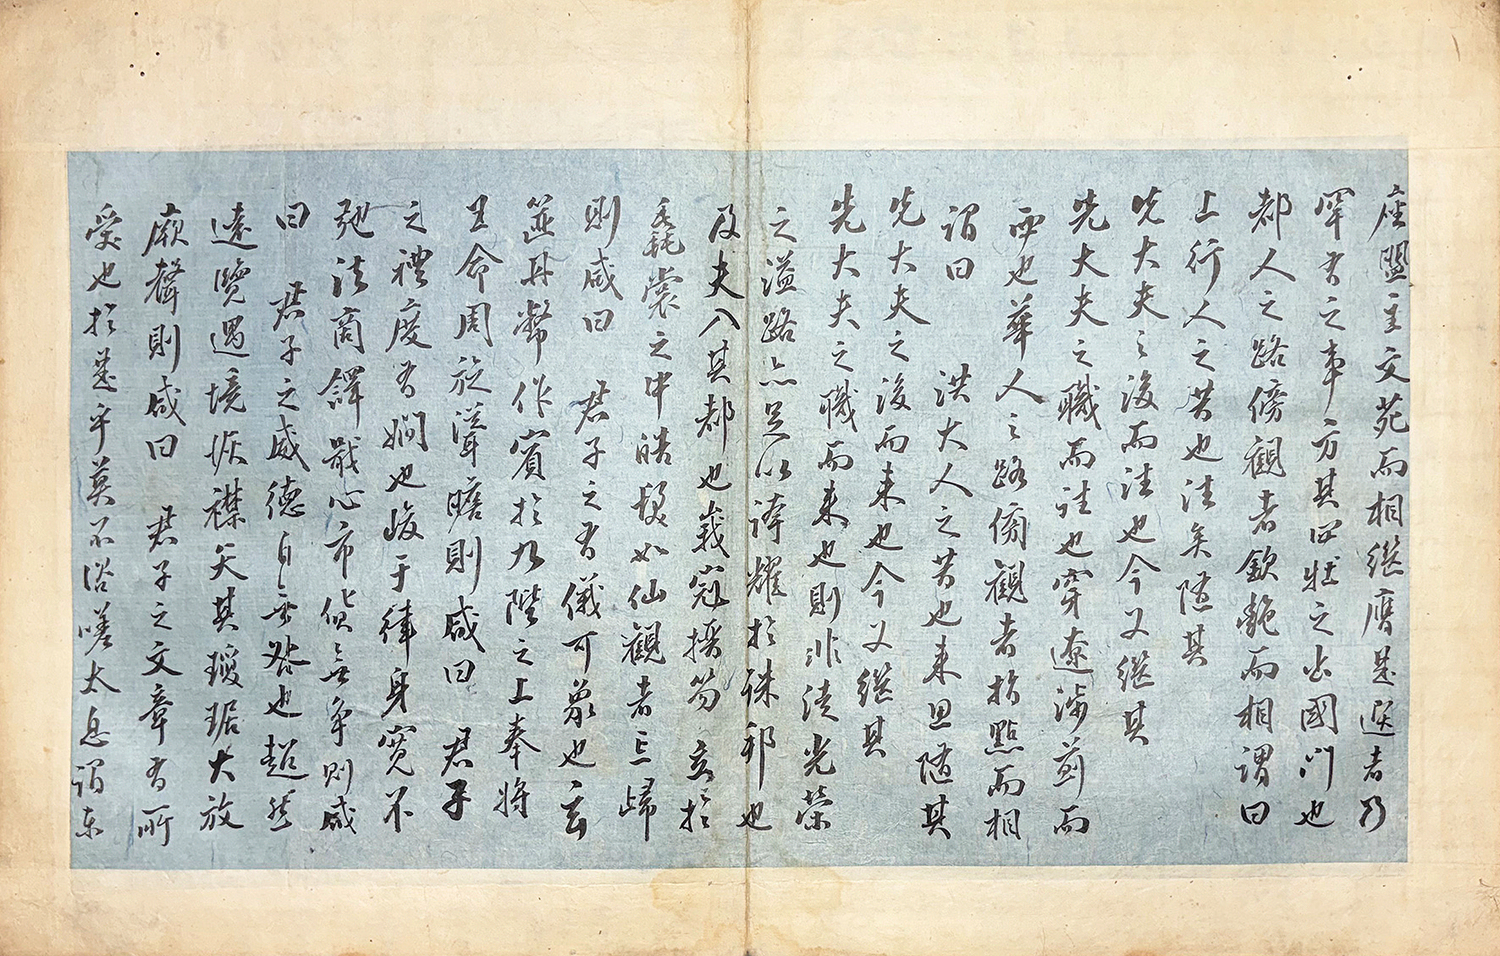 座盟主文苑而相繼膺是選者乃
罕有之事方其四牡之出國門也
都人之路傍觀者欽艶而相謂曰
上行人之昔也往矣随其
先大夫之後而往也今又繼其
先大夫之職而往也穿遼涉薊而
西也華人之路傍觀者指點而相
謂曰 洪大人之昔也来思随其
先大夫之後而来也今又繼其
先大夫之職而来也則非徒光榮
之溢路亦足以誇耀於殊邦也
及夫入其都也峩冠搢笏立於
毳裳之中皓髮如仙觀者忘歸
則咸曰 君子之有儀可象也云
筵丹幣作賓於九陛之上奉將
王命周旋聳瞻則咸曰 君子
之禮度有嫺也峻于律身寬不
弛法商譯戢心市能無争則咸
曰 君子之威德自無咎也超然
遠覽遇境恢襟天其瓊琚大放
厥聲則咸曰 君子之文章有所
受也於是乎莫不咨嗟太息謂東